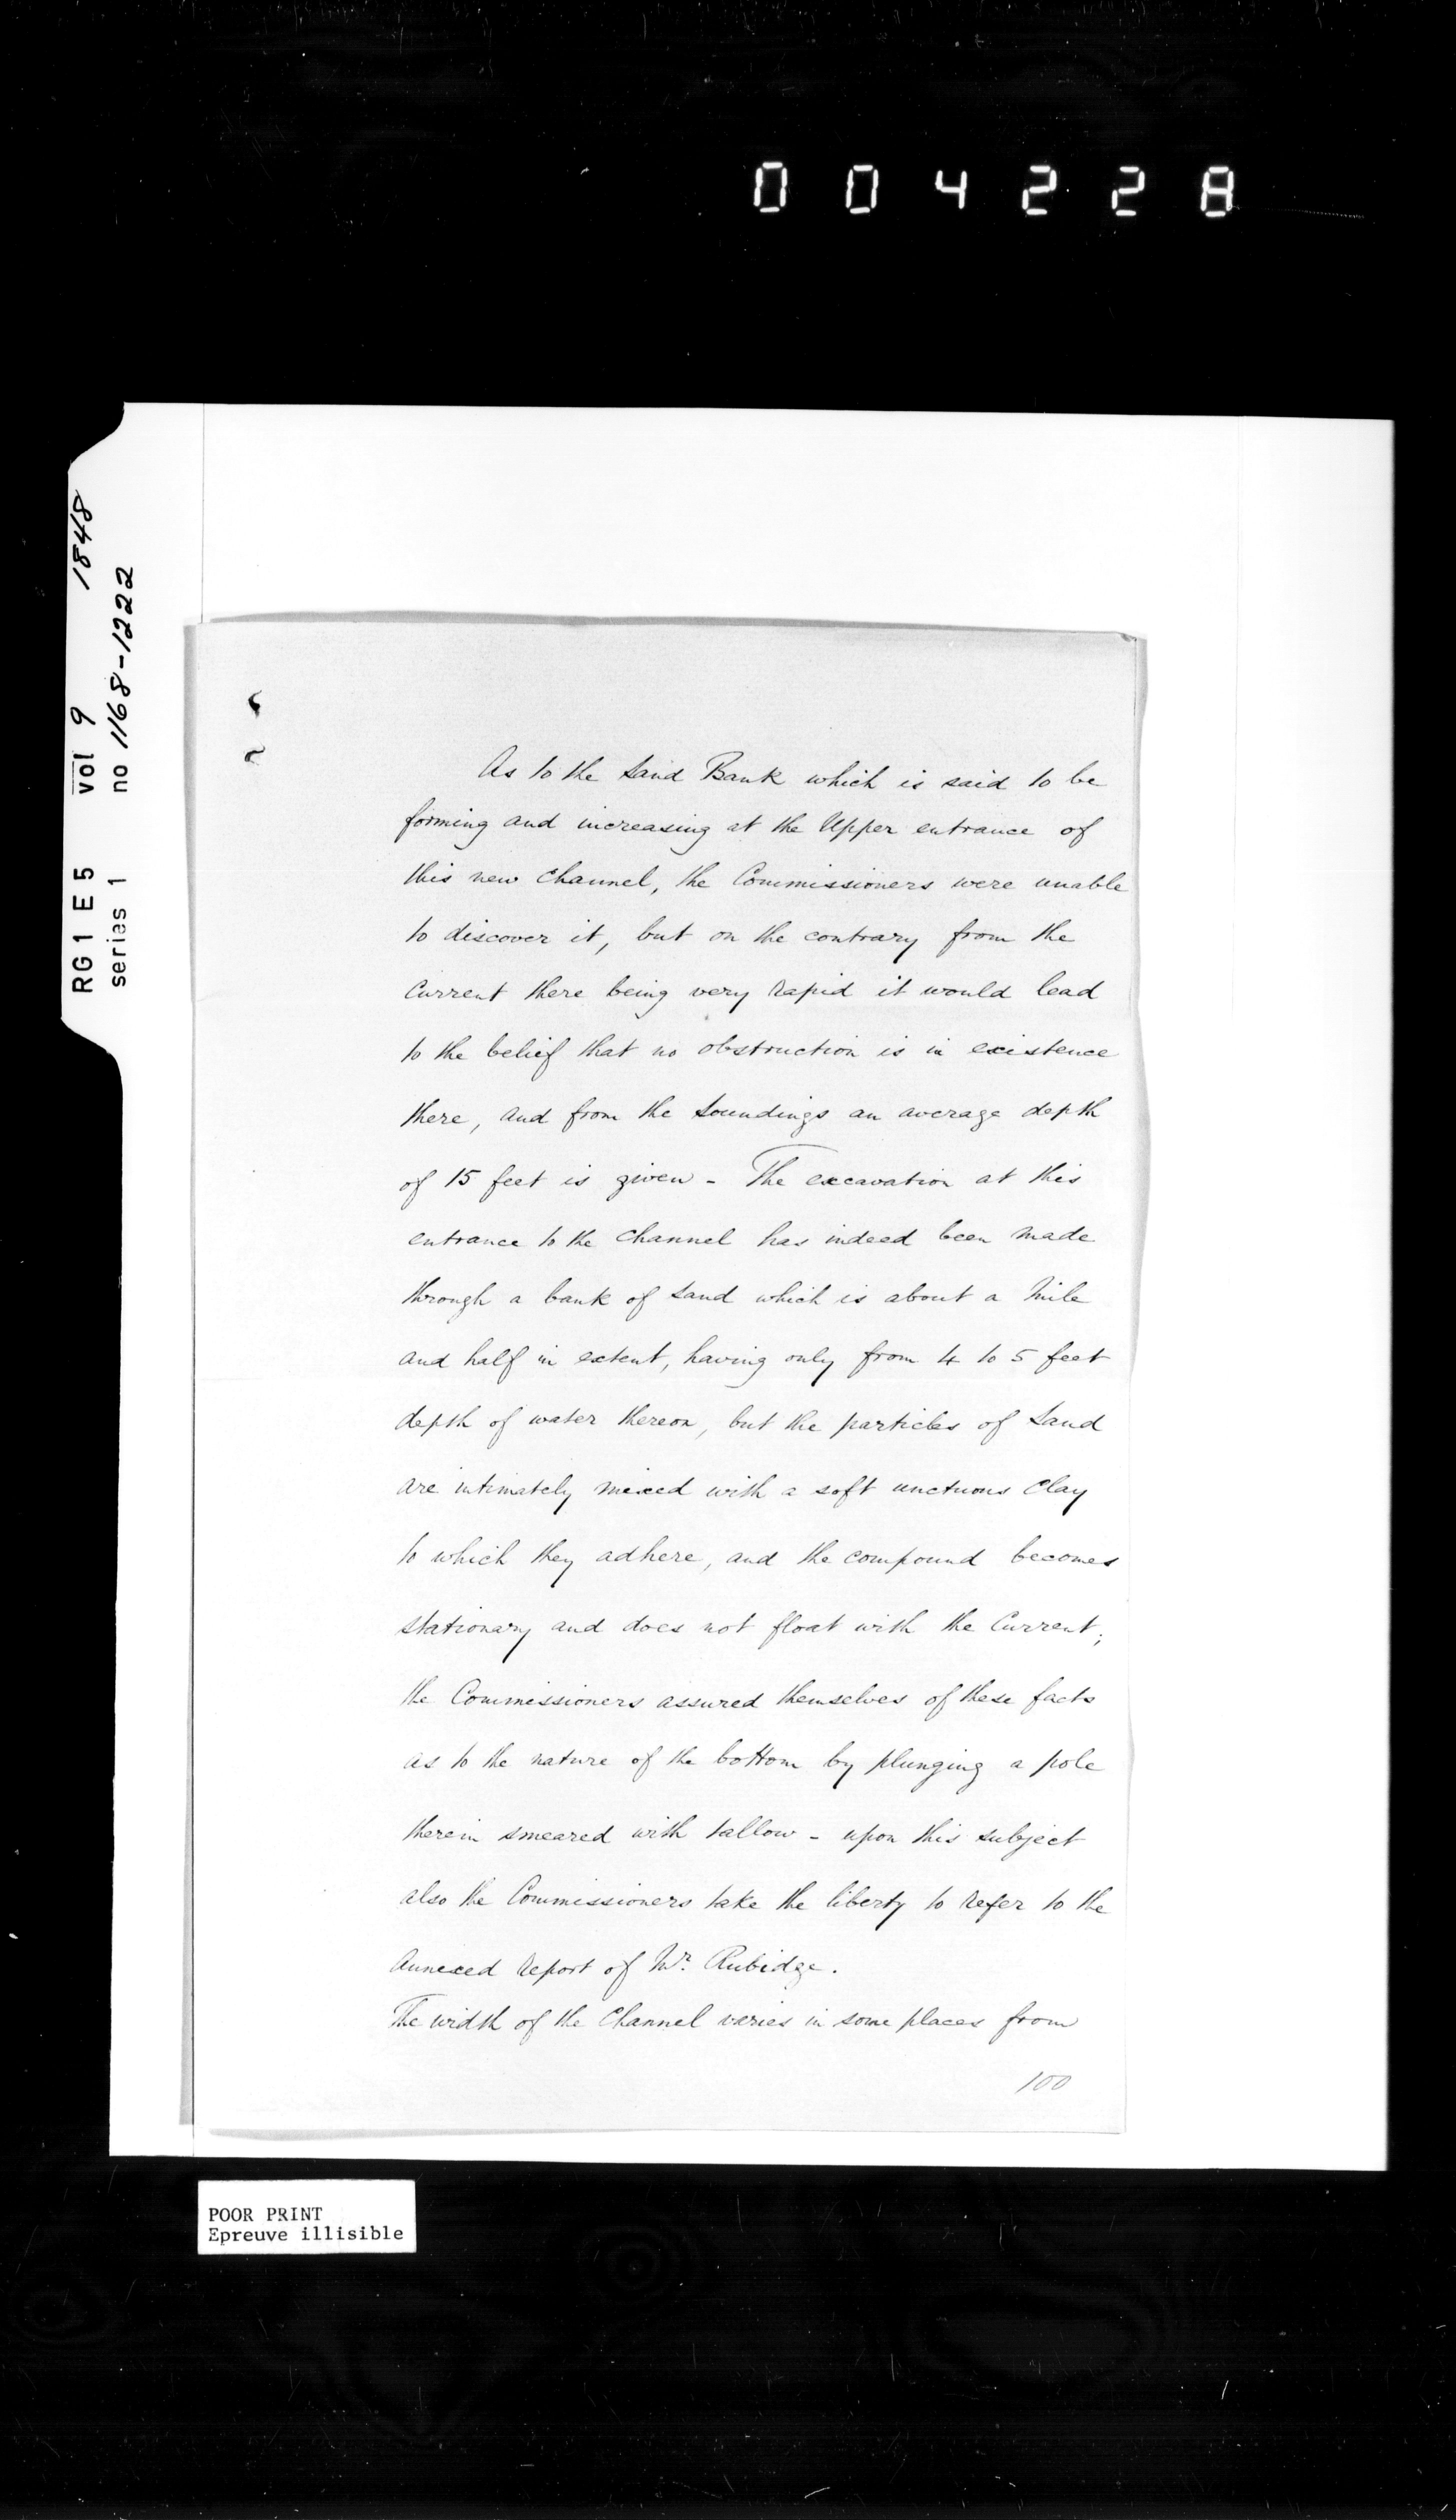 004228
RG1 E5 vol 9 1848
series 1 no 1168-1222
As to the Sand Bank which is said to be
forming and increasing at the Upper entrance of
this new Channel, the Commissioners were unable
to discover it, but on the contrary from the
Current there being very rapid it would lead
to the belief that no obstruction is in existence
there, and from the Soundings an average depth
of 15 feet is given - The excavation at this
entrance to the Channel has indeed been made
through a bank of Sand which is about a Mile
and half in extent, having only from 4 to 5 feet
depth of water thereon, but the particles of Sand
are intimately mixed with a soft unctuous Clay
to which they adhere, and the compound becomes
stationary and does not float with the Current;
the Commissioners assured themselves of these facts
as to the nature of the bottom by plunging a pole
therein smeared with tallow - upon this subject
also the Commissioners take the liberty to refer to the
Annexed Report of Mr. Rubidge.
The width of the Channel varies in some places from
100
POOR PRINT
Epreuve illisible